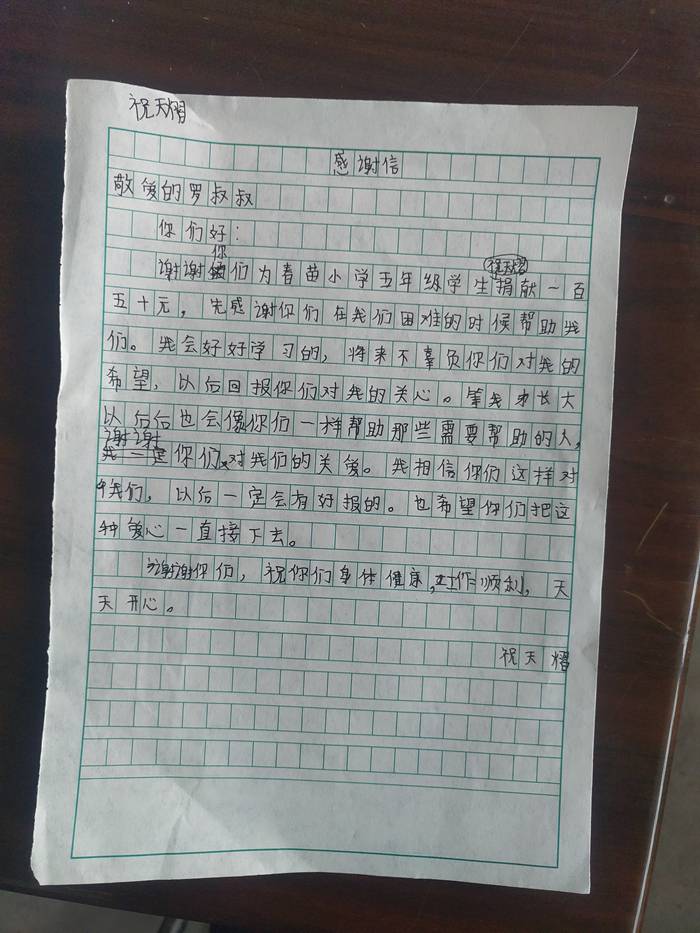 祝天熠
感谢信
敬爱的罗叔叔
你们好：
你
祝天熠
谢谢们为春苗小学五年级学生捐献一百
五十元，先感谢你们在我们困难的时候帮助我
们。我会好好学习的，将来不辜负你们对我的
希望，以后回报你们对我的关心。等我长大
以后后也会像你们一样帮助那些需要帮助的人，
谢谢
你们对我们的关爱。我相信你们这样对
我们，以后一定会有好报的。也希望你们把这
种爱心一直接下去。
谢谢你们，祝你们身体健康，工作顺利，天
天开心。
祝天熠